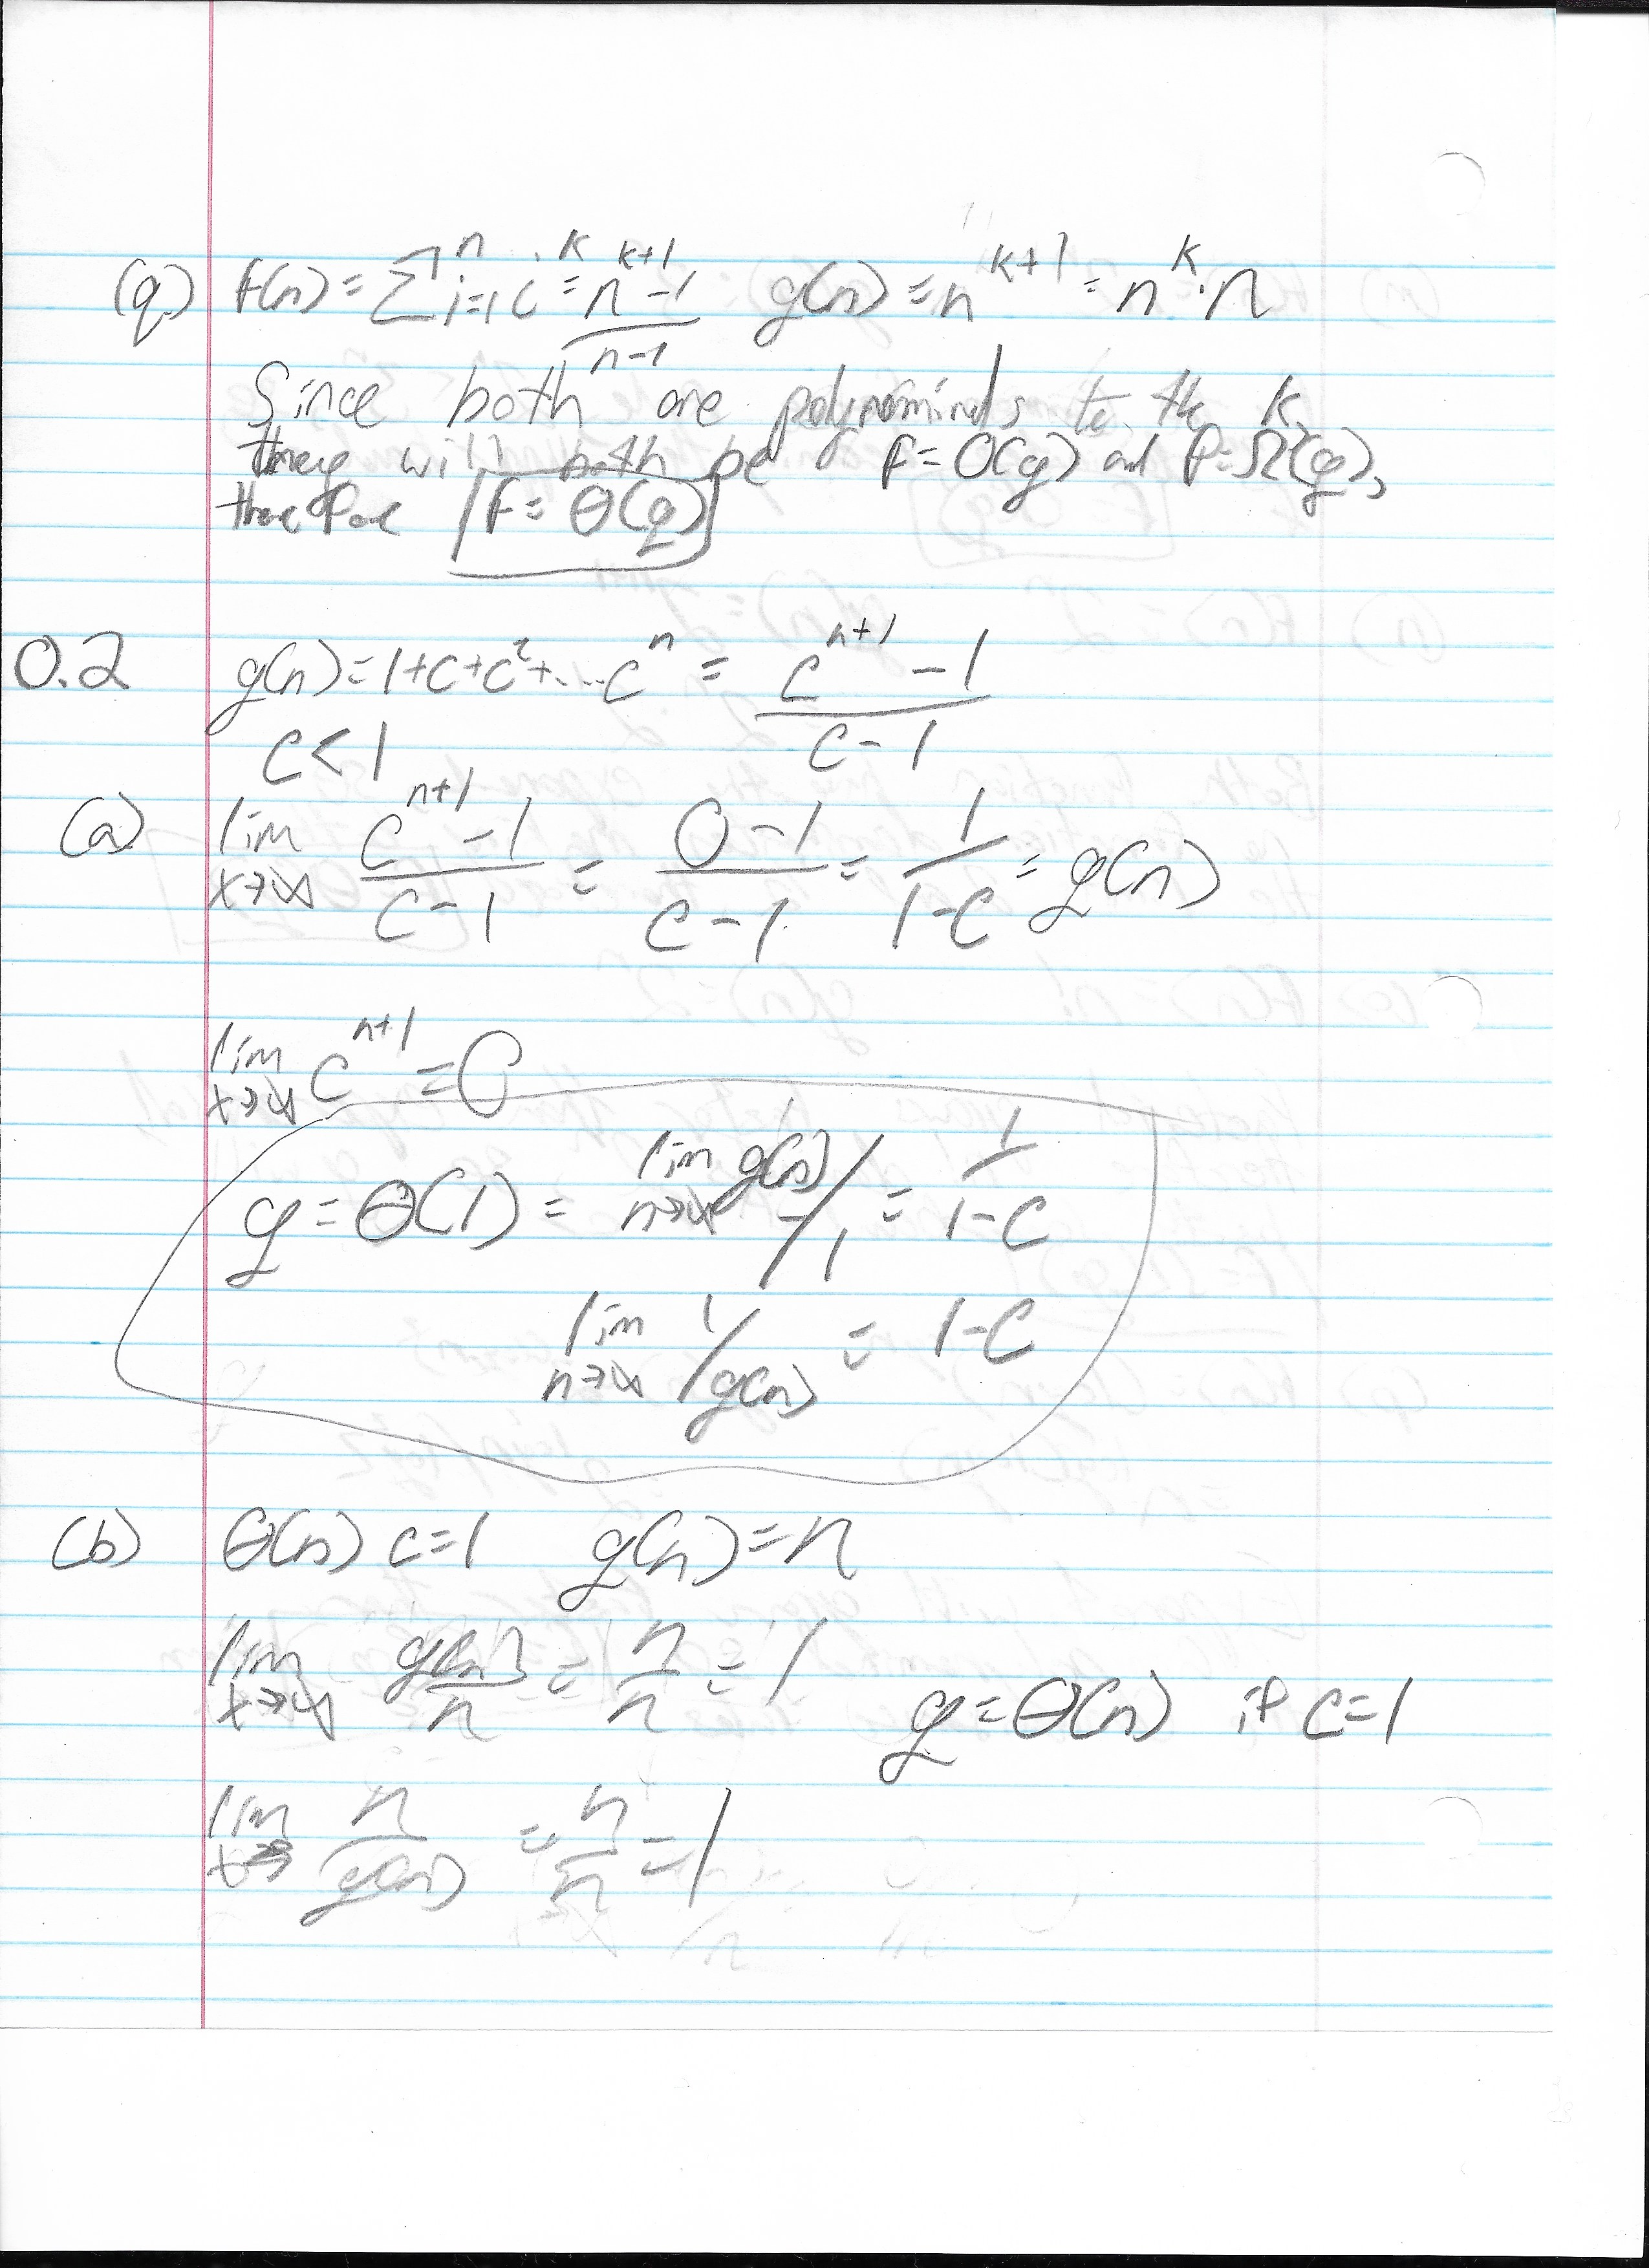 (q) f(n) = ∑ⁿi=1 i^k = (n^(k+1) - 1)/(n-1) g(n) = n^(k+1) = n^k · n
Since both are polynominals to the K,
they will both be f = O(g) and f = Ω(g),
therefore f = Θ(g)
0.2 g(n) = 1+c+c²+....c^n = (c^(n+1) - 1)/(c-1)
c < 1
(a) lim x→∞ (c^(n+1) - 1)/(c-1) = (0-1)/(c-1) = 1/(1-c) = g(n)
lim x→∞ c^(n+1) = 0
g = Θ(1) = lim n→∞ g(n)/1 = 1/(1-c)
lim n→∞ 1/g(n) = 1-c
(b) Θ(n) c=1 g(n) = n
lim x→∞ g(n)/n = n/n = 1
g = Θ(n) if c=1
lim x→ n/g(n) = n/n = 1